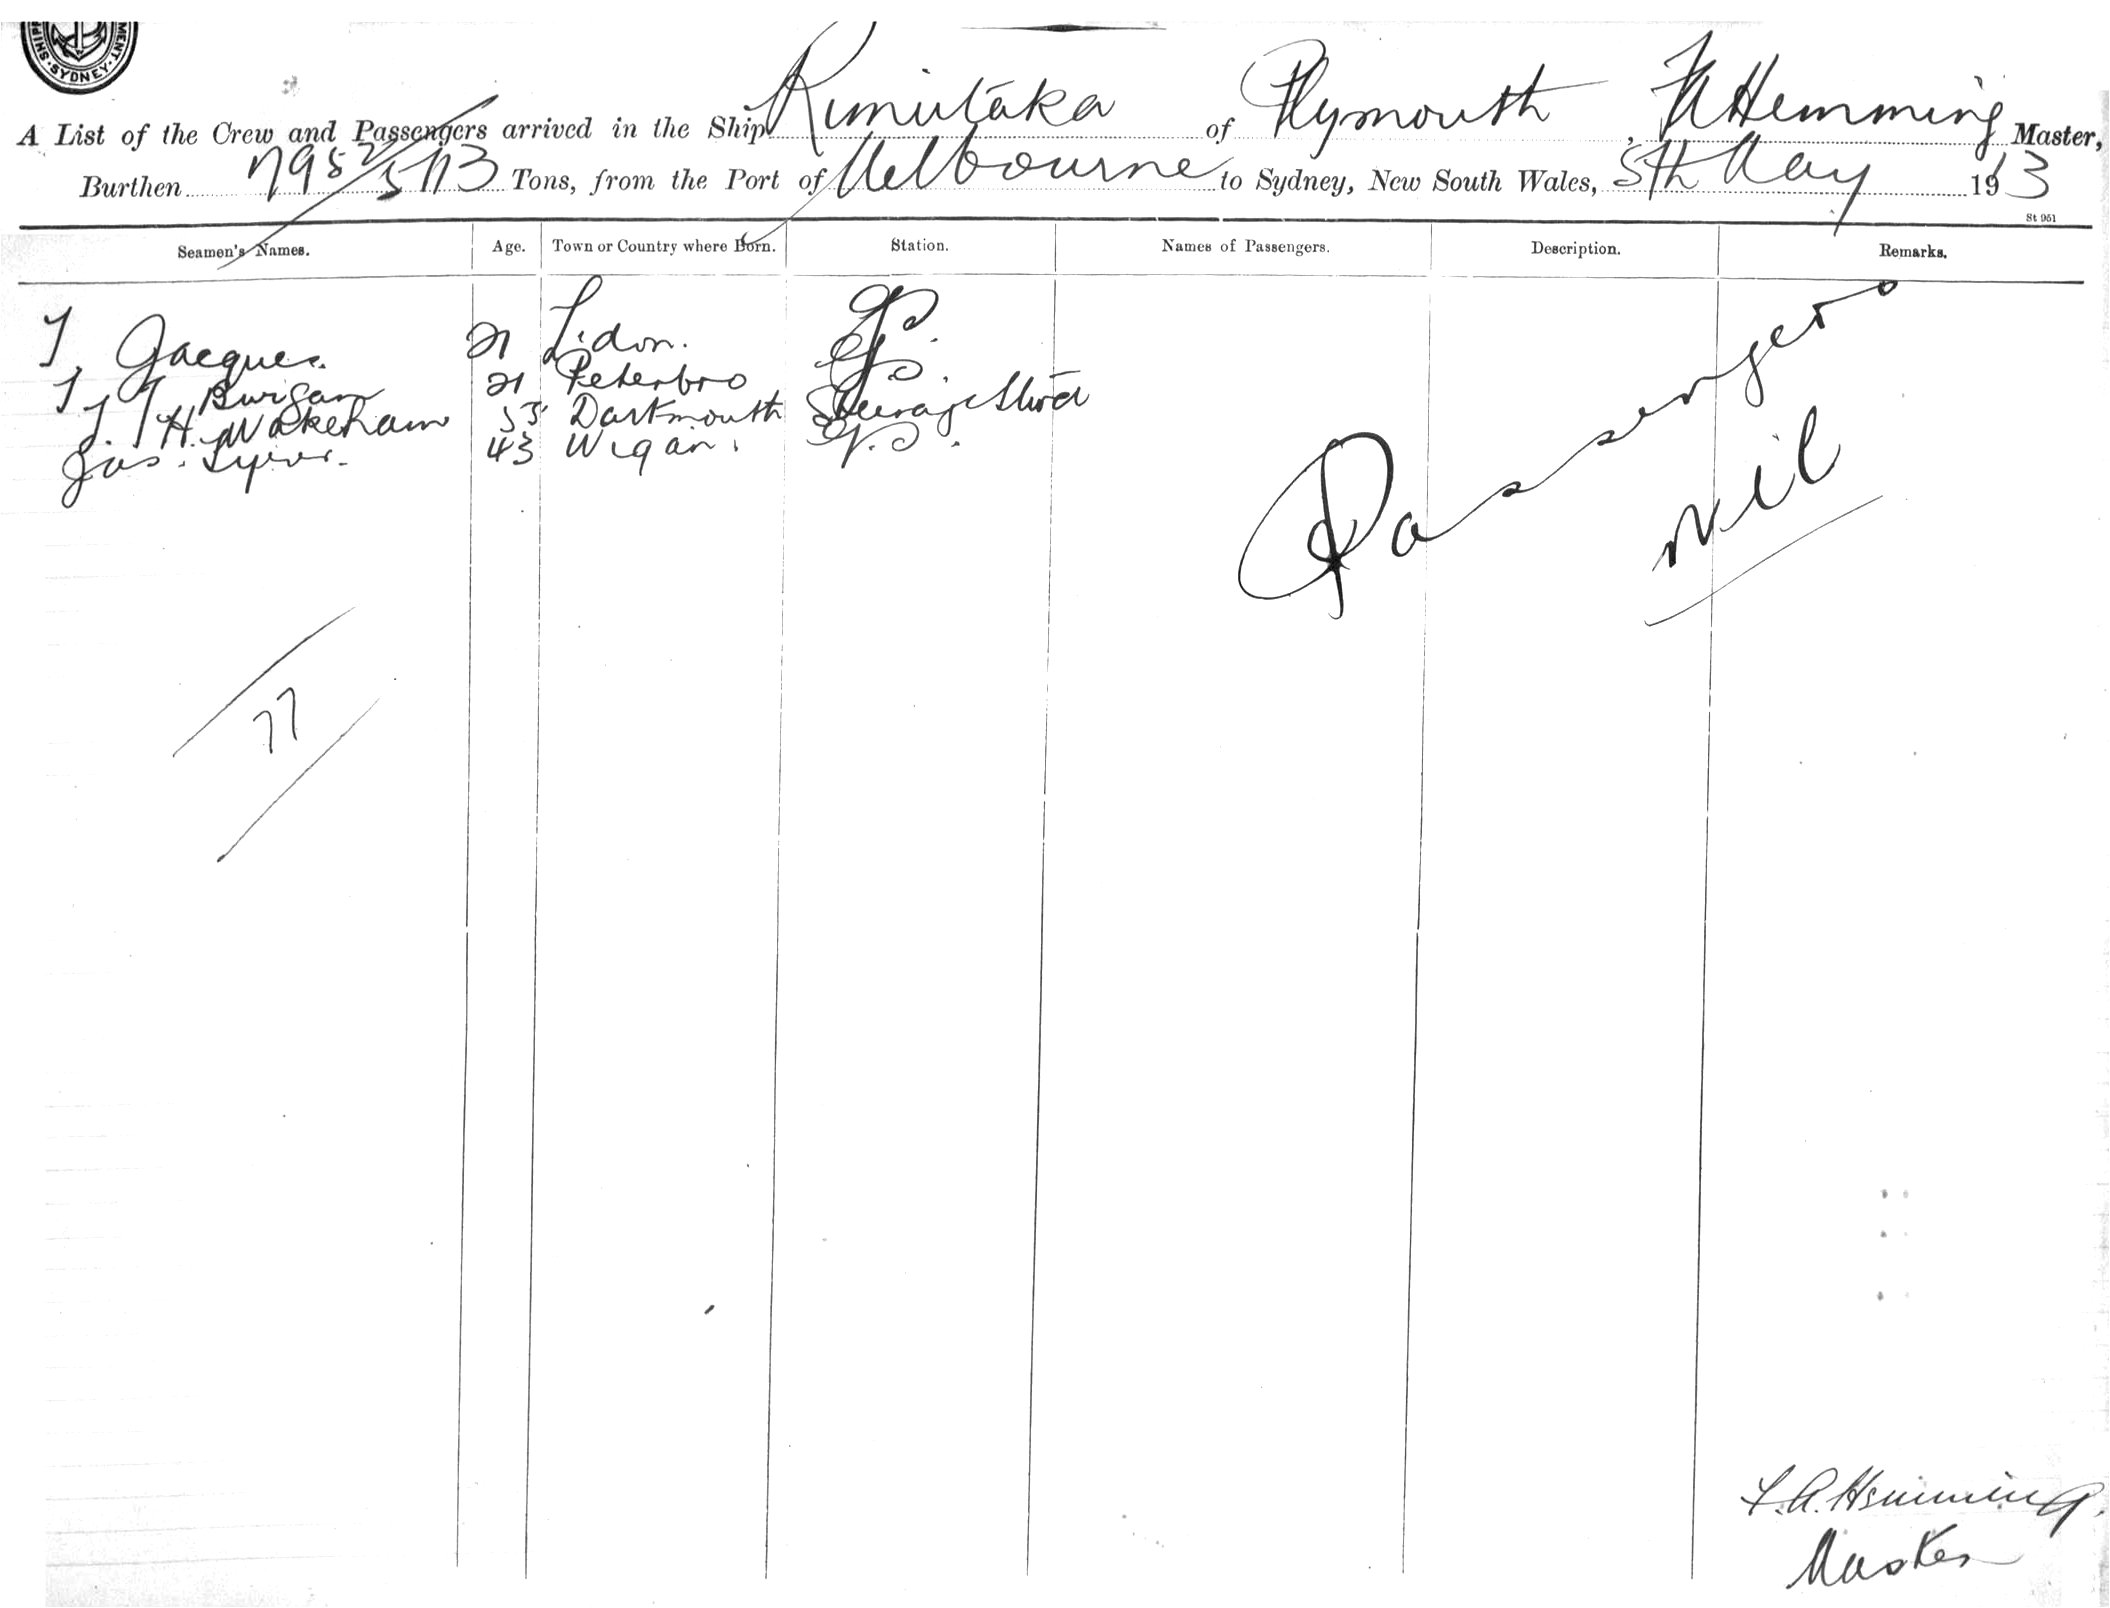 SHIP MENT · SYDNEY ·
A List of the Crew and Passengers arrived in the Ship Rimutaka of Plymouth, FA Hemming Master,
Burthen 7952/5113 Tons, from the Port of Melbourne to Sydney, New South Wales, 5th May 1913
St 951
Seamen's Names. Age. Town or Country where Born. Station. Names of Passengers. Description. Remarks.
T. Jacques. 21 G.S.
21 Peterbro G.S.
J. H. Wakeham 53 Dartmouth Steerage Stwd
Jas. 43 Wigan. G.S.
Passengers
nil
77
F.A. Hemming.
Master